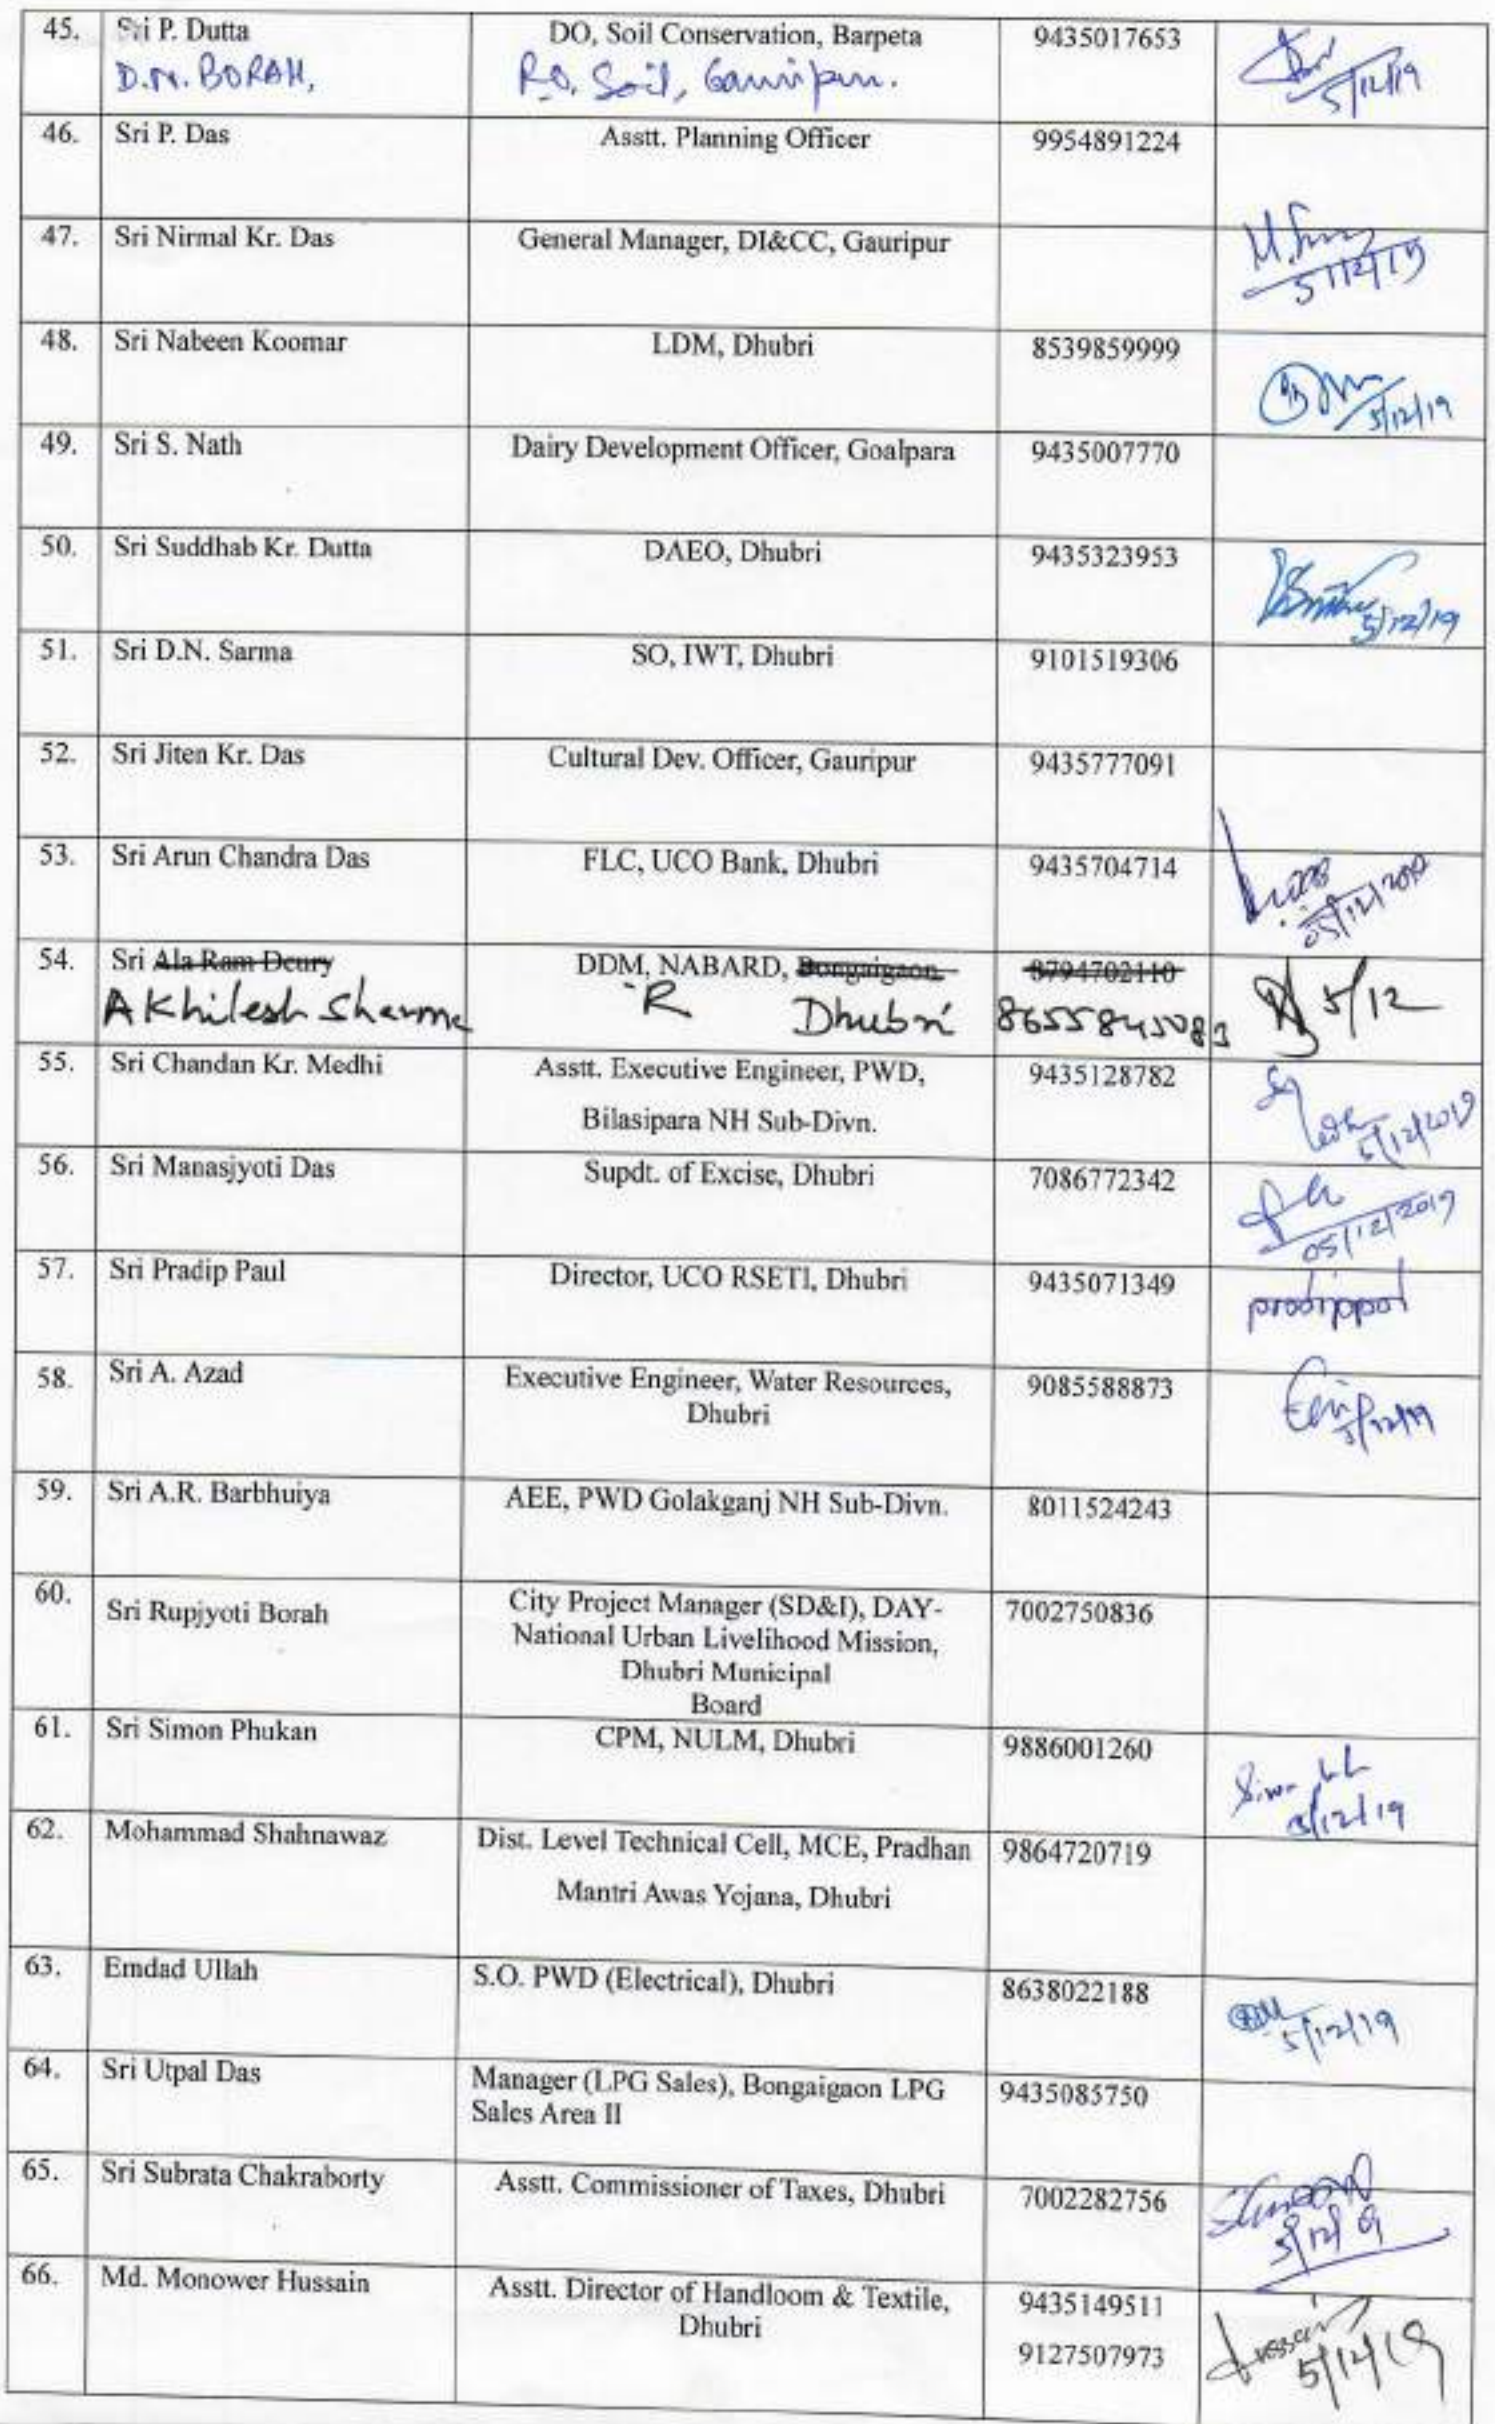 45. Sri P. Dutta DO, Soil Conservation, Barpeta 9435017653
D.N. BORAH, R.O. Soil, Gauripur. 5/12/19
46. Sri P. Das Asstt. Planning Officer 9954891224
47. Sri Nirmal Kr. Das General Manager, DI&CC, Gauripur
5/12/19
48. Sri Nabeen Koomar LDM, Dhubri 8539859999
5/12/19
49. Sri S. Nath Dairy Development Officer, Goalpara 9435007770
50. Sri Suddhab Kr. Dutta DAEO, Dhubri 9435323953
5/12/19
51. Sri D.N. Sarma SO, IWT, Dhubri 9101519306
52. Sri Jiten Kr. Das Cultural Dev. Officer, Gauripur 9435777091
53. Sri Arun Chandra Das FLC, UCO Bank, Dhubri 9435704714
05/12/2019
54. Sri Ala Ram Deury DDM, NABARD, Bongaigaon 8794702110
Akhilesh Sharma R Dhubri 8655845083 5/12
55. Sri Chandan Kr. Medhi Asstt. Executive Engineer, PWD, 9435128782
Bilasipara NH Sub-Divn. 5/12/2019
56. Sri Manasjyoti Das Supdt. of Excise, Dhubri 7086772342
05/12/2019
57. Sri Pradip Paul Director, UCO RSETI, Dhubri 9435071349
58. Sri A. Azad Executive Engineer, Water Resources, 9085588873
Dhubri 5/12/19
59. Sri A.R. Barbhuiya AEE, PWD Golakganj NH Sub-Divn. 8011524243
60. Sri Rupjyoti Borah City Project Manager (SD&I), DAY- 7002750836
National Urban Livelihood Mission,
Dhubri Municipal
Board
61. Sri Simon Phukan CPM, NULM, Dhubri 9886001260
5/12/19
62. Mohammad Shahnawaz Dist. Level Technical Cell, MCE, Pradhan 9864720719
Mantri Awas Yojana, Dhubri
63. Emdad Ullah S.O. PWD (Electrical), Dhubri 8638022188
5/12/19
64. Sri Utpal Das Manager (LPG Sales), Bongaigaon LPG 9435085750
Sales Area II
65. Sri Subrata Chakraborty Asstt. Commissioner of Taxes, Dhubri 7002282756
5/12/19
66. Md. Monower Hussain Asstt. Director of Handloom & Textile, 9435149511
Dhubri
9127507973
5/12/19